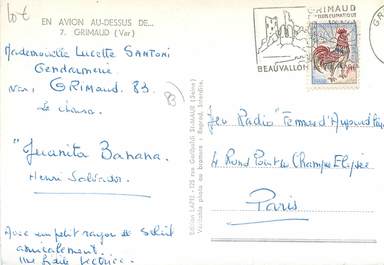 10€
EN AVION AU-DESSUS DE...
7. GRIMAUD (Var)
Mademoiselle Lucette SANTONI
Gendarmerie
Var, GRimaud. 83
83
"Juanita Banana"
Henri Salvador.
Avec un petit rayon de soleil
amicalement.
une fidèle lectrice.
Edition LAPIE - 125 rue Garibaldi ST-MAUR (Seine)
Véritable photo au bromure - Reprod. Interdite.
GRIMAUD
BEAUVALLON
Jeu Radio "Femmes d'Aujourd'hui"
4 Rond Point des Champs Elysées
Paris